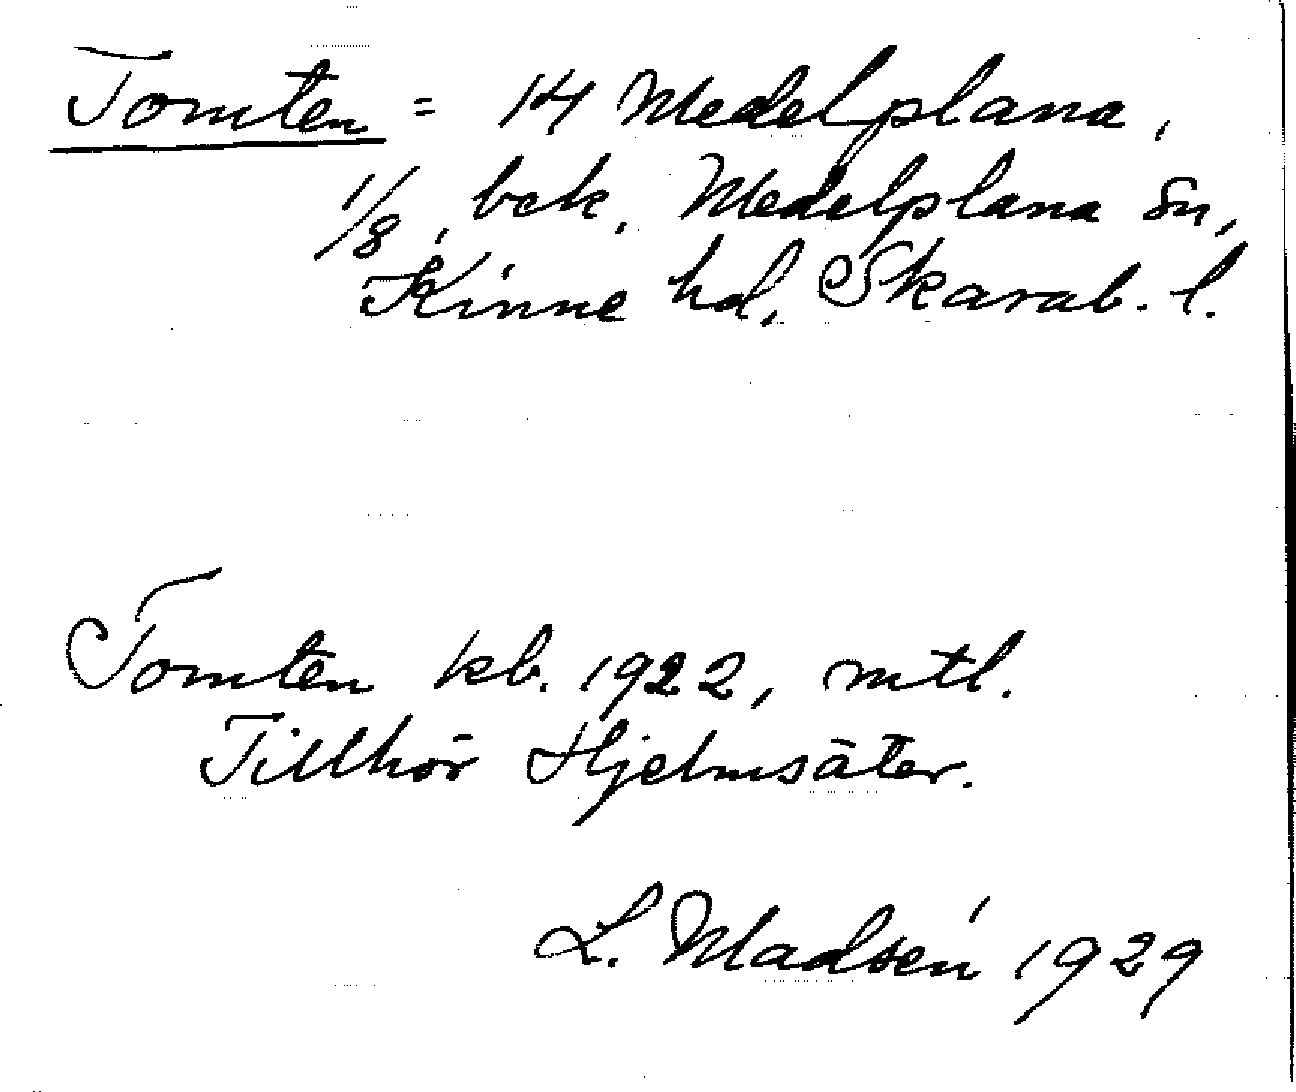 Tomten = 14 Medelplana,
1/8, bek. Medelplana sn,
Kinne hd, Skarab. l.
Tomten kb. 1922, mtl.
Tillhör Hjelmsäter.
L. Madsén 1929